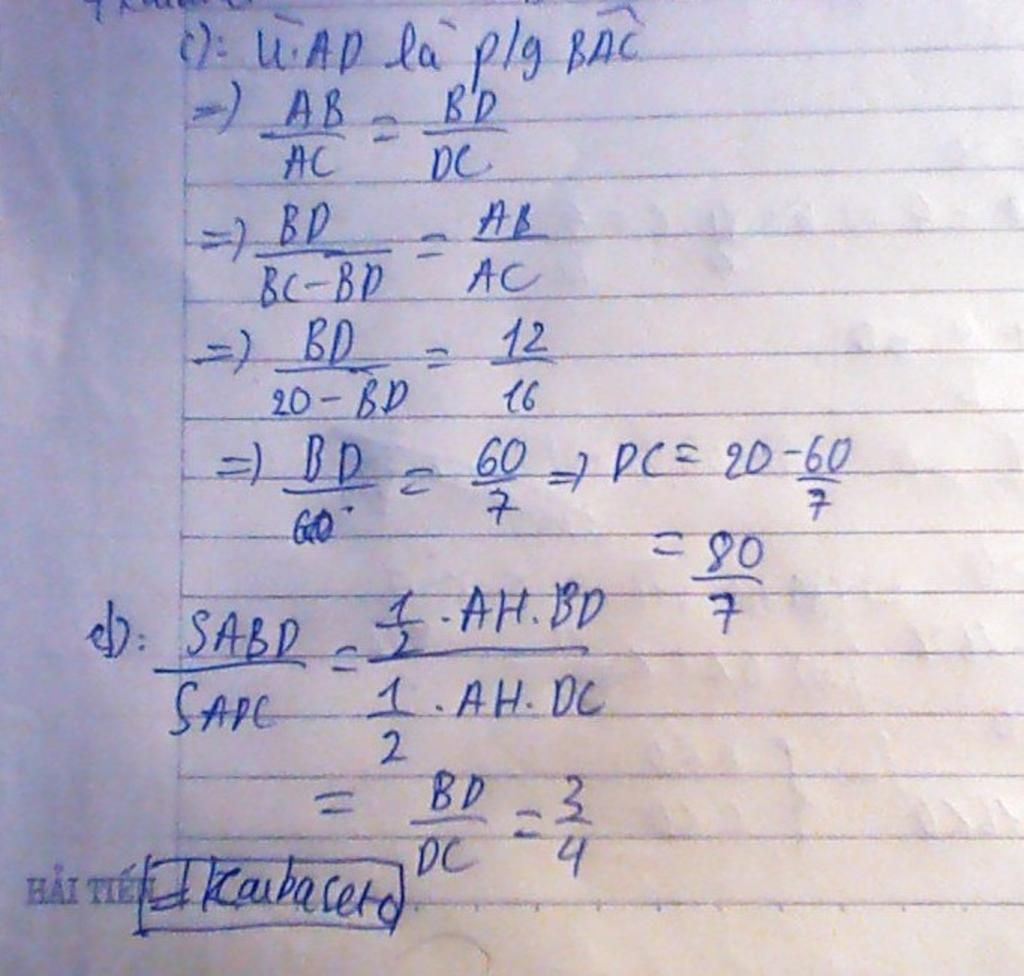 c): Vì AD là p/g BAC
=) AB/AC = BD/DC
=) BD/BC-BD = AB/AC
=) BD/20-BD = 12/16
=) BD/60 = 60/7 =) DC = 20-60/7
= 80/7
d): SABD/SADC = 1/2 . AH. BD / 1/2 . AH. DC
= BD/DC = 3/4
HẢI TIẾN